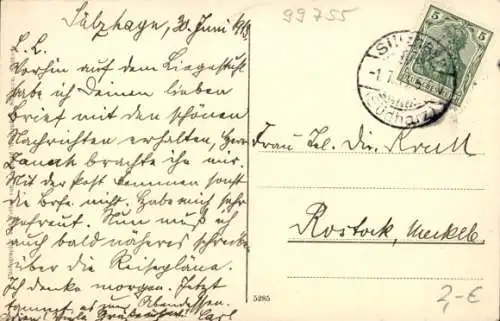 Sülzhayn, 30. Juni 19
99755
L. L.
Vorhin auf dem Liegestuhl
habe ich Deinen lieben
Brief mit den schönen
Nachrichten erhalten, Herr
brachte ihn mir.
Mit der Post kommen sonst
die Briefe nicht. Habe mich sehr
gefreut. Nun muß ich
auch bald näheres schreiben
über die Reisepläne.
Ich denke morgen. Jetzt
kommt es zum Abendessen.
viele Grüße Carl
5
(Südharz)
Frau Tel. Dir. Krull
Rostock, Mecklb.
5285
2,-€